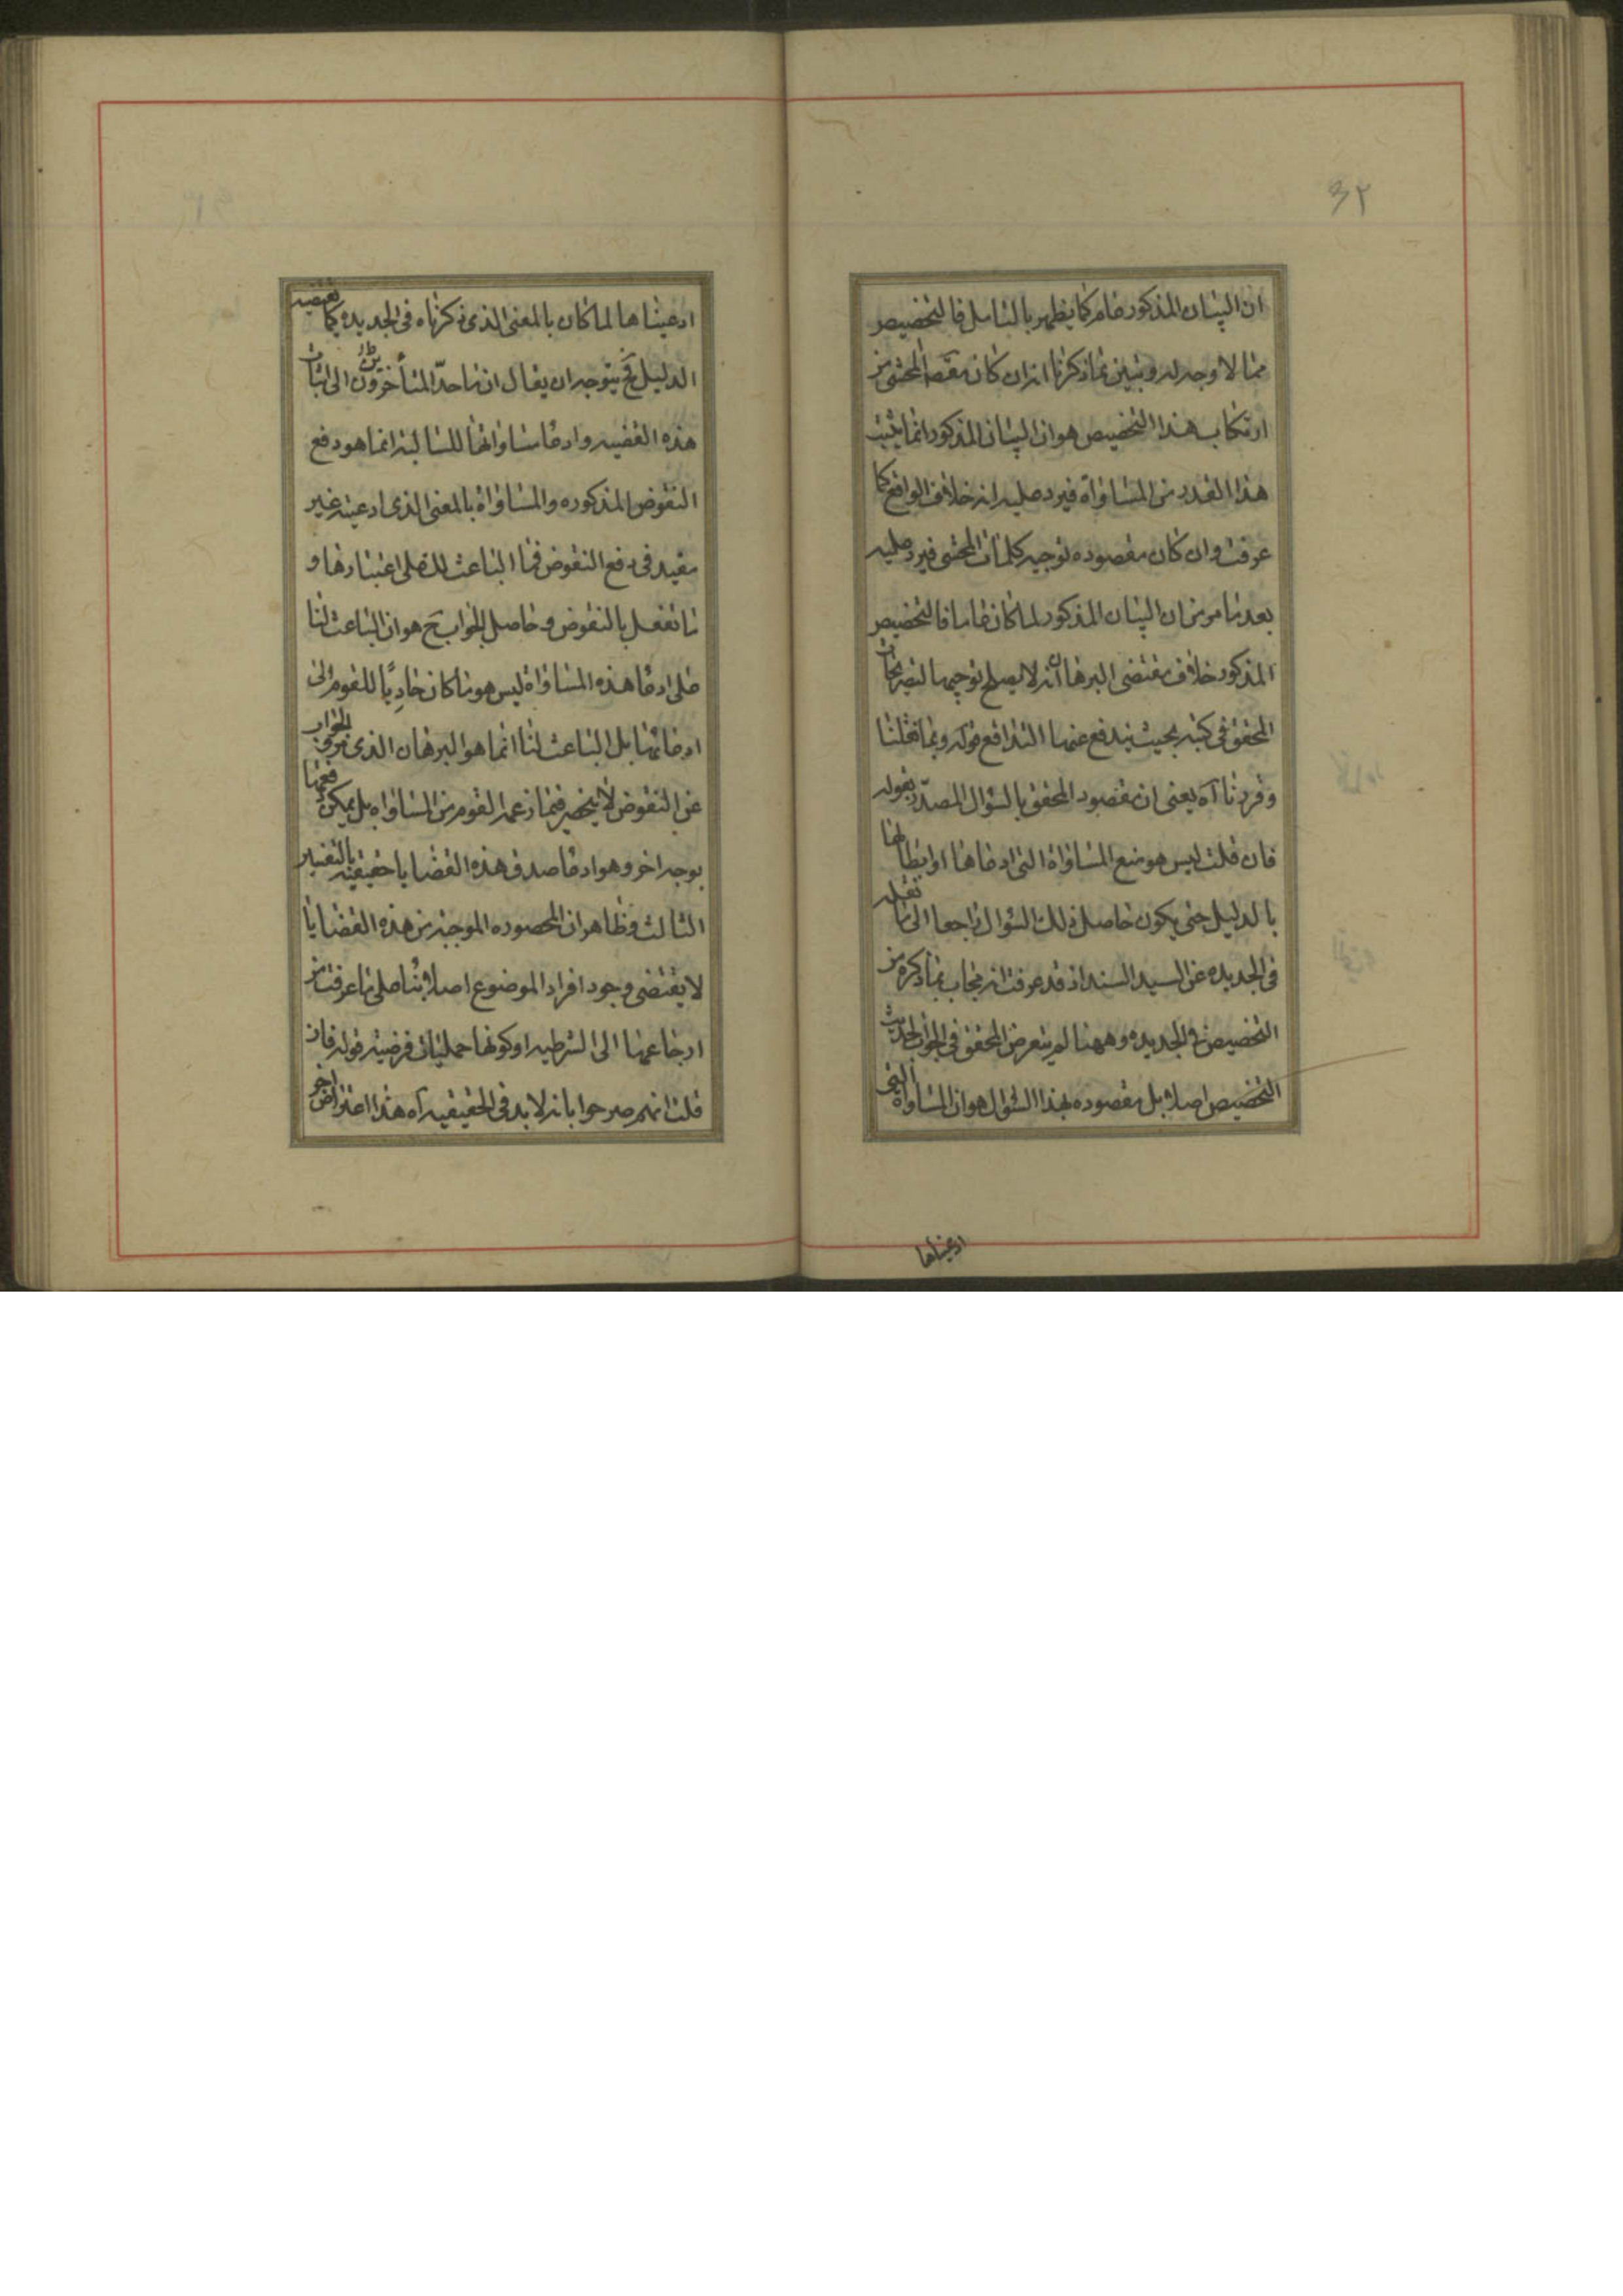 ٣٢
ان البيان المذكور عام كما يظهر بالتامل فالتخصيص
مما لا وجه له وتبين بما ذكرنا انه ان كان مقصد المحشى من
ارتكاب هذا التخصيص هو ان البيان المذكور انما يثبت
هذا القدر من المساواة فيرد عليه انه خلاف الواقع كما
عرفت وان كان مقصوده توجيه كلمات المحشى فيرد عليه
بعد ما مر من ان البيان المذكور لما كان عاما فالتخصيص
المذكور خلاف مقتضى البرهان انه لا يصلح توجيها لتصريحات
المحقق فى كتبه بحيث يندفع عنها التدافع قوله وبما نقلنا
وقررنا آه يعنى ان مقصود المحقق بالسؤال المصدّر بقوله
فان قلت ليس هو منع المساواة التى ادعاها او ابطالها
بالدليل حتى يكون حاصل ذلك السؤال راجعا الى ما نقله
فى الجديده عن السيد السند اذ قد عرفت انه يجاب بما ذكره من
التخصيص فى الجديده وههنا لم يتعرض المحقق فى الجواب لحديث
التخصيص اصلا بل مقصوده بهذا السؤال هو ان المساواة التى
ادعيناها
ادعيناها لما كان بالمعنى الذى ذكرناه فى الجديده كما يقتضيه
الدليل فح يتوجه ان يقال ان ما حدّ المتأخرون الى اثبات
هذه القضيه وادعا مساواتها للسالبه انما هو دفع
النقوض المذكوره والمساواة بالمعنى الذى ادعيته غير
مفيد فى دفع النقوض فما الباعث لك على اعتبارها و
ما تفعل بالنقوض وحاصل الجواب ح هو ان الباعث لنا
على ادعا هذه المساواة ليس هو ما كان حاديًا للقوم الى
ادعائها بل الباعث لنا انما هو البرهان الذى مر فى الجواب
عن النقوض لا ينحصر فيما زعمه القوم من المساواه بل يمكن دفعها
بوجه اخر وهو ادعا صدق هذه القضايا حقيقيه بالتفسير
الثالث وظاهر ان المحصوره الموجبه من هذه القضايا
لا يقتضى وجود افراد الموضوع اصلا بنا على ما عرفت من
ارجاعها الى الشرطيه او كونها حمليات فرضيه قوله فان
قلت انهم صرحوا بانه لا بد فى الحقيقيه آه هذا اعتراض اخر